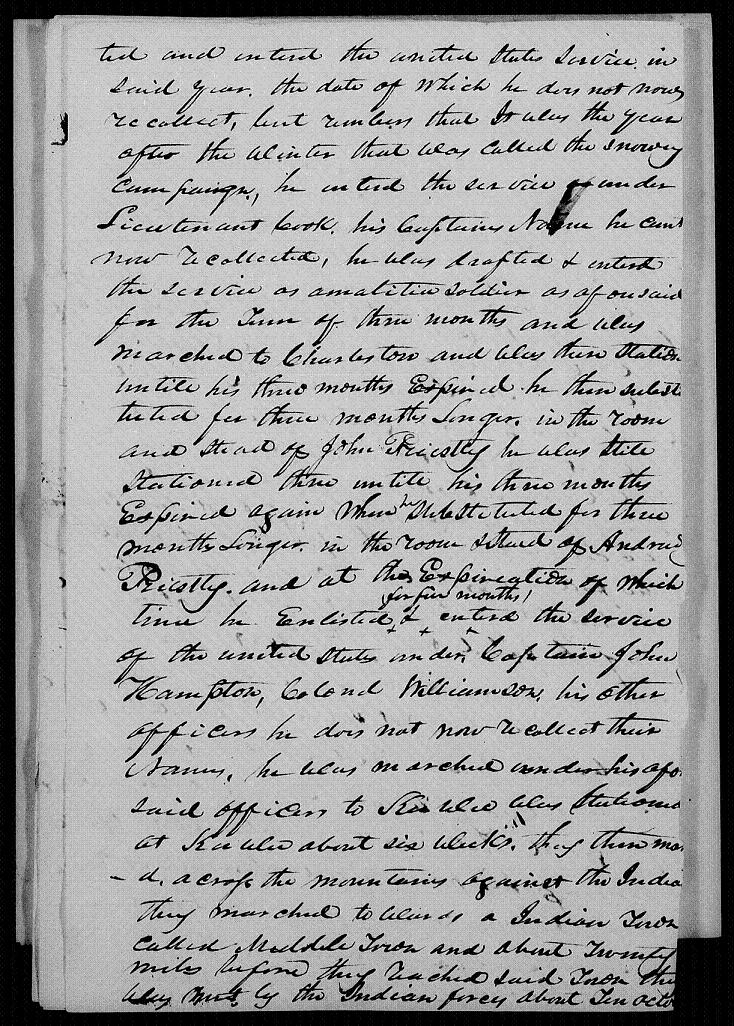 ted and enterd the united States Service in
said year. the date of which he does not now
recollect, but rembers that It was the year
after the Winter that was called the snowey
campaign, he enterd the service under
Lieutenant Cook. his Captains Name he cant
now recollected, he was drafted & enterd
the service as a malitia soldier as aforesaid
for the Term of three months and was
marched to Charleston and was then station
untile his three months Expired he then substi
tuted for three months Longer. in the room
and stead of John Priestly he was stile
stationed there untile his three months
Expired again when he substituted for three
months Longer. in the room & stead of Andrew
Priestly. and at the Expireation of which
for five months
time he Enlisted & enterd the service
of the united States under Captain John
Hampton, Colonel Williamson, his other
officers he does not now recollect their
Names, he was marched under his afor
said officers to Kee wee was Stationd
at Kee wee about six weeks. they then mar
d. across the mountains against the India
they marched towards a Indian Town
called Meddele Town and about Twenty
miles before they reached said Town the
was met by the Indian forces about Ten octo